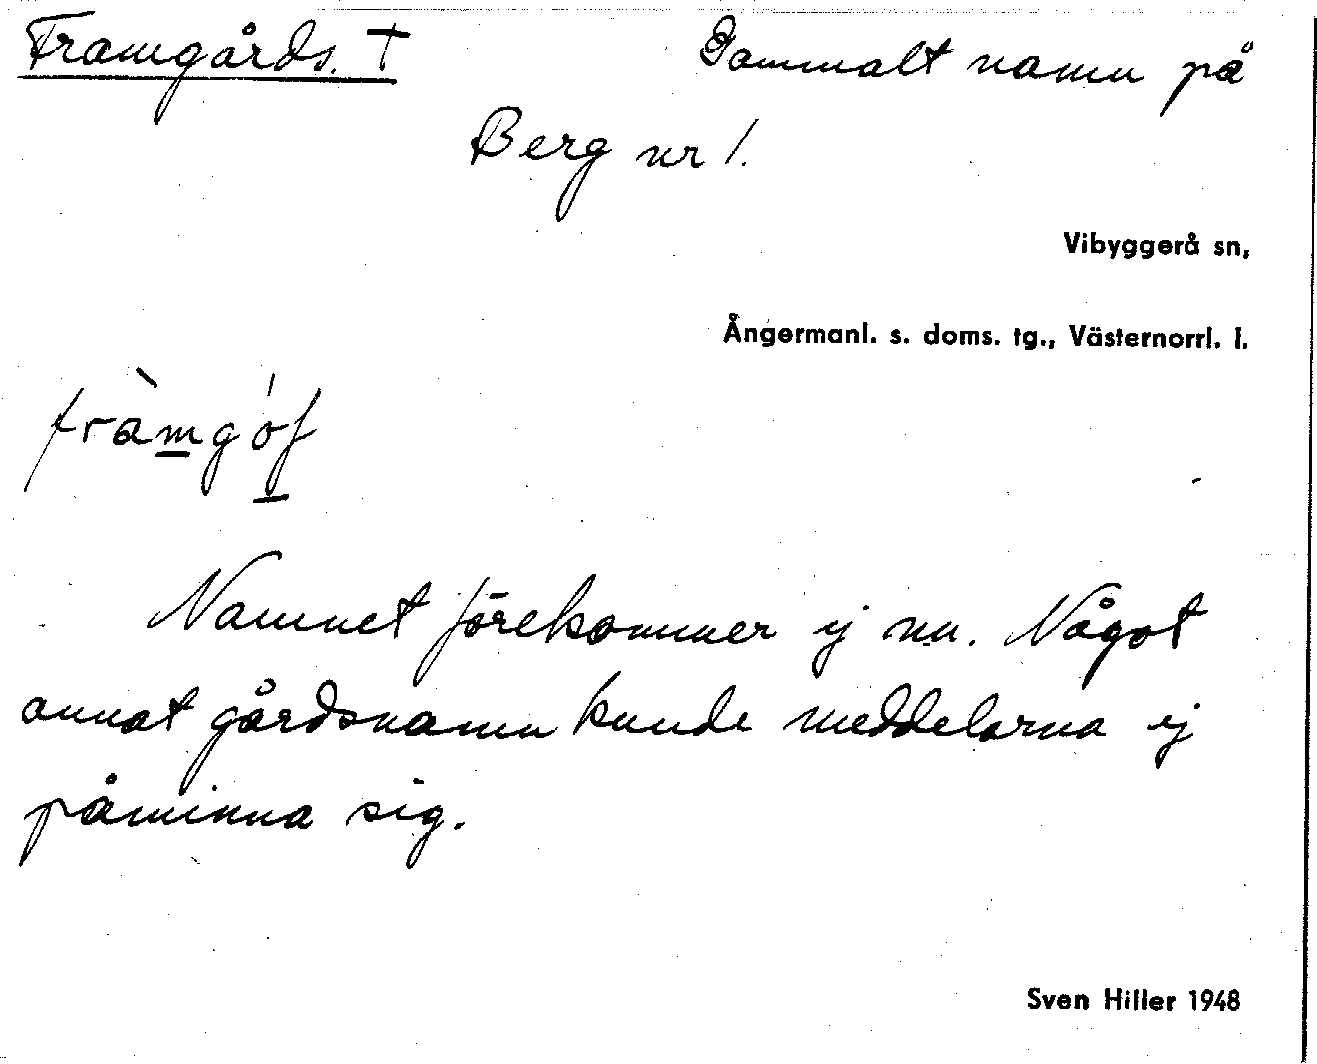 Framgårds. † Gammalt namn på
Berg nr 1.
Vibyggerå sn,
Ångermanl. s. doms. tg., Västernorrl. l.
Namnet förekommer ej nu. Något
annat gårdsnamn kunde meddelarna ej
påminna sig.
Sven Hiller 1948